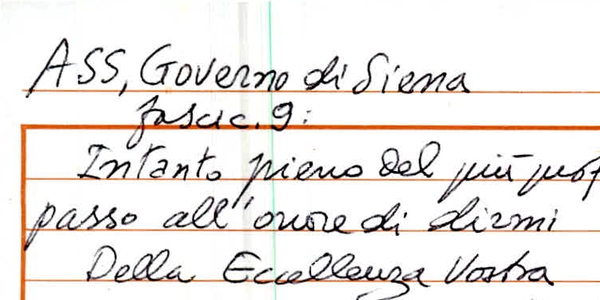 ASS, Governo di Siena
fascic. 9:
Intanto pieno del più prof
passo all'onore di dirmi
Della Eccellenza Vostra